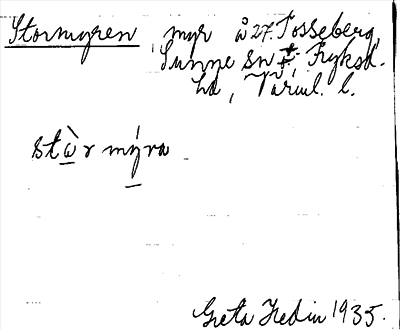 Stormyren, myr å 27. Tosseberg,
Sunne sn, Fryksd.
hd, Värml. l.
stὼr mýra
Greta Hedin 1935.